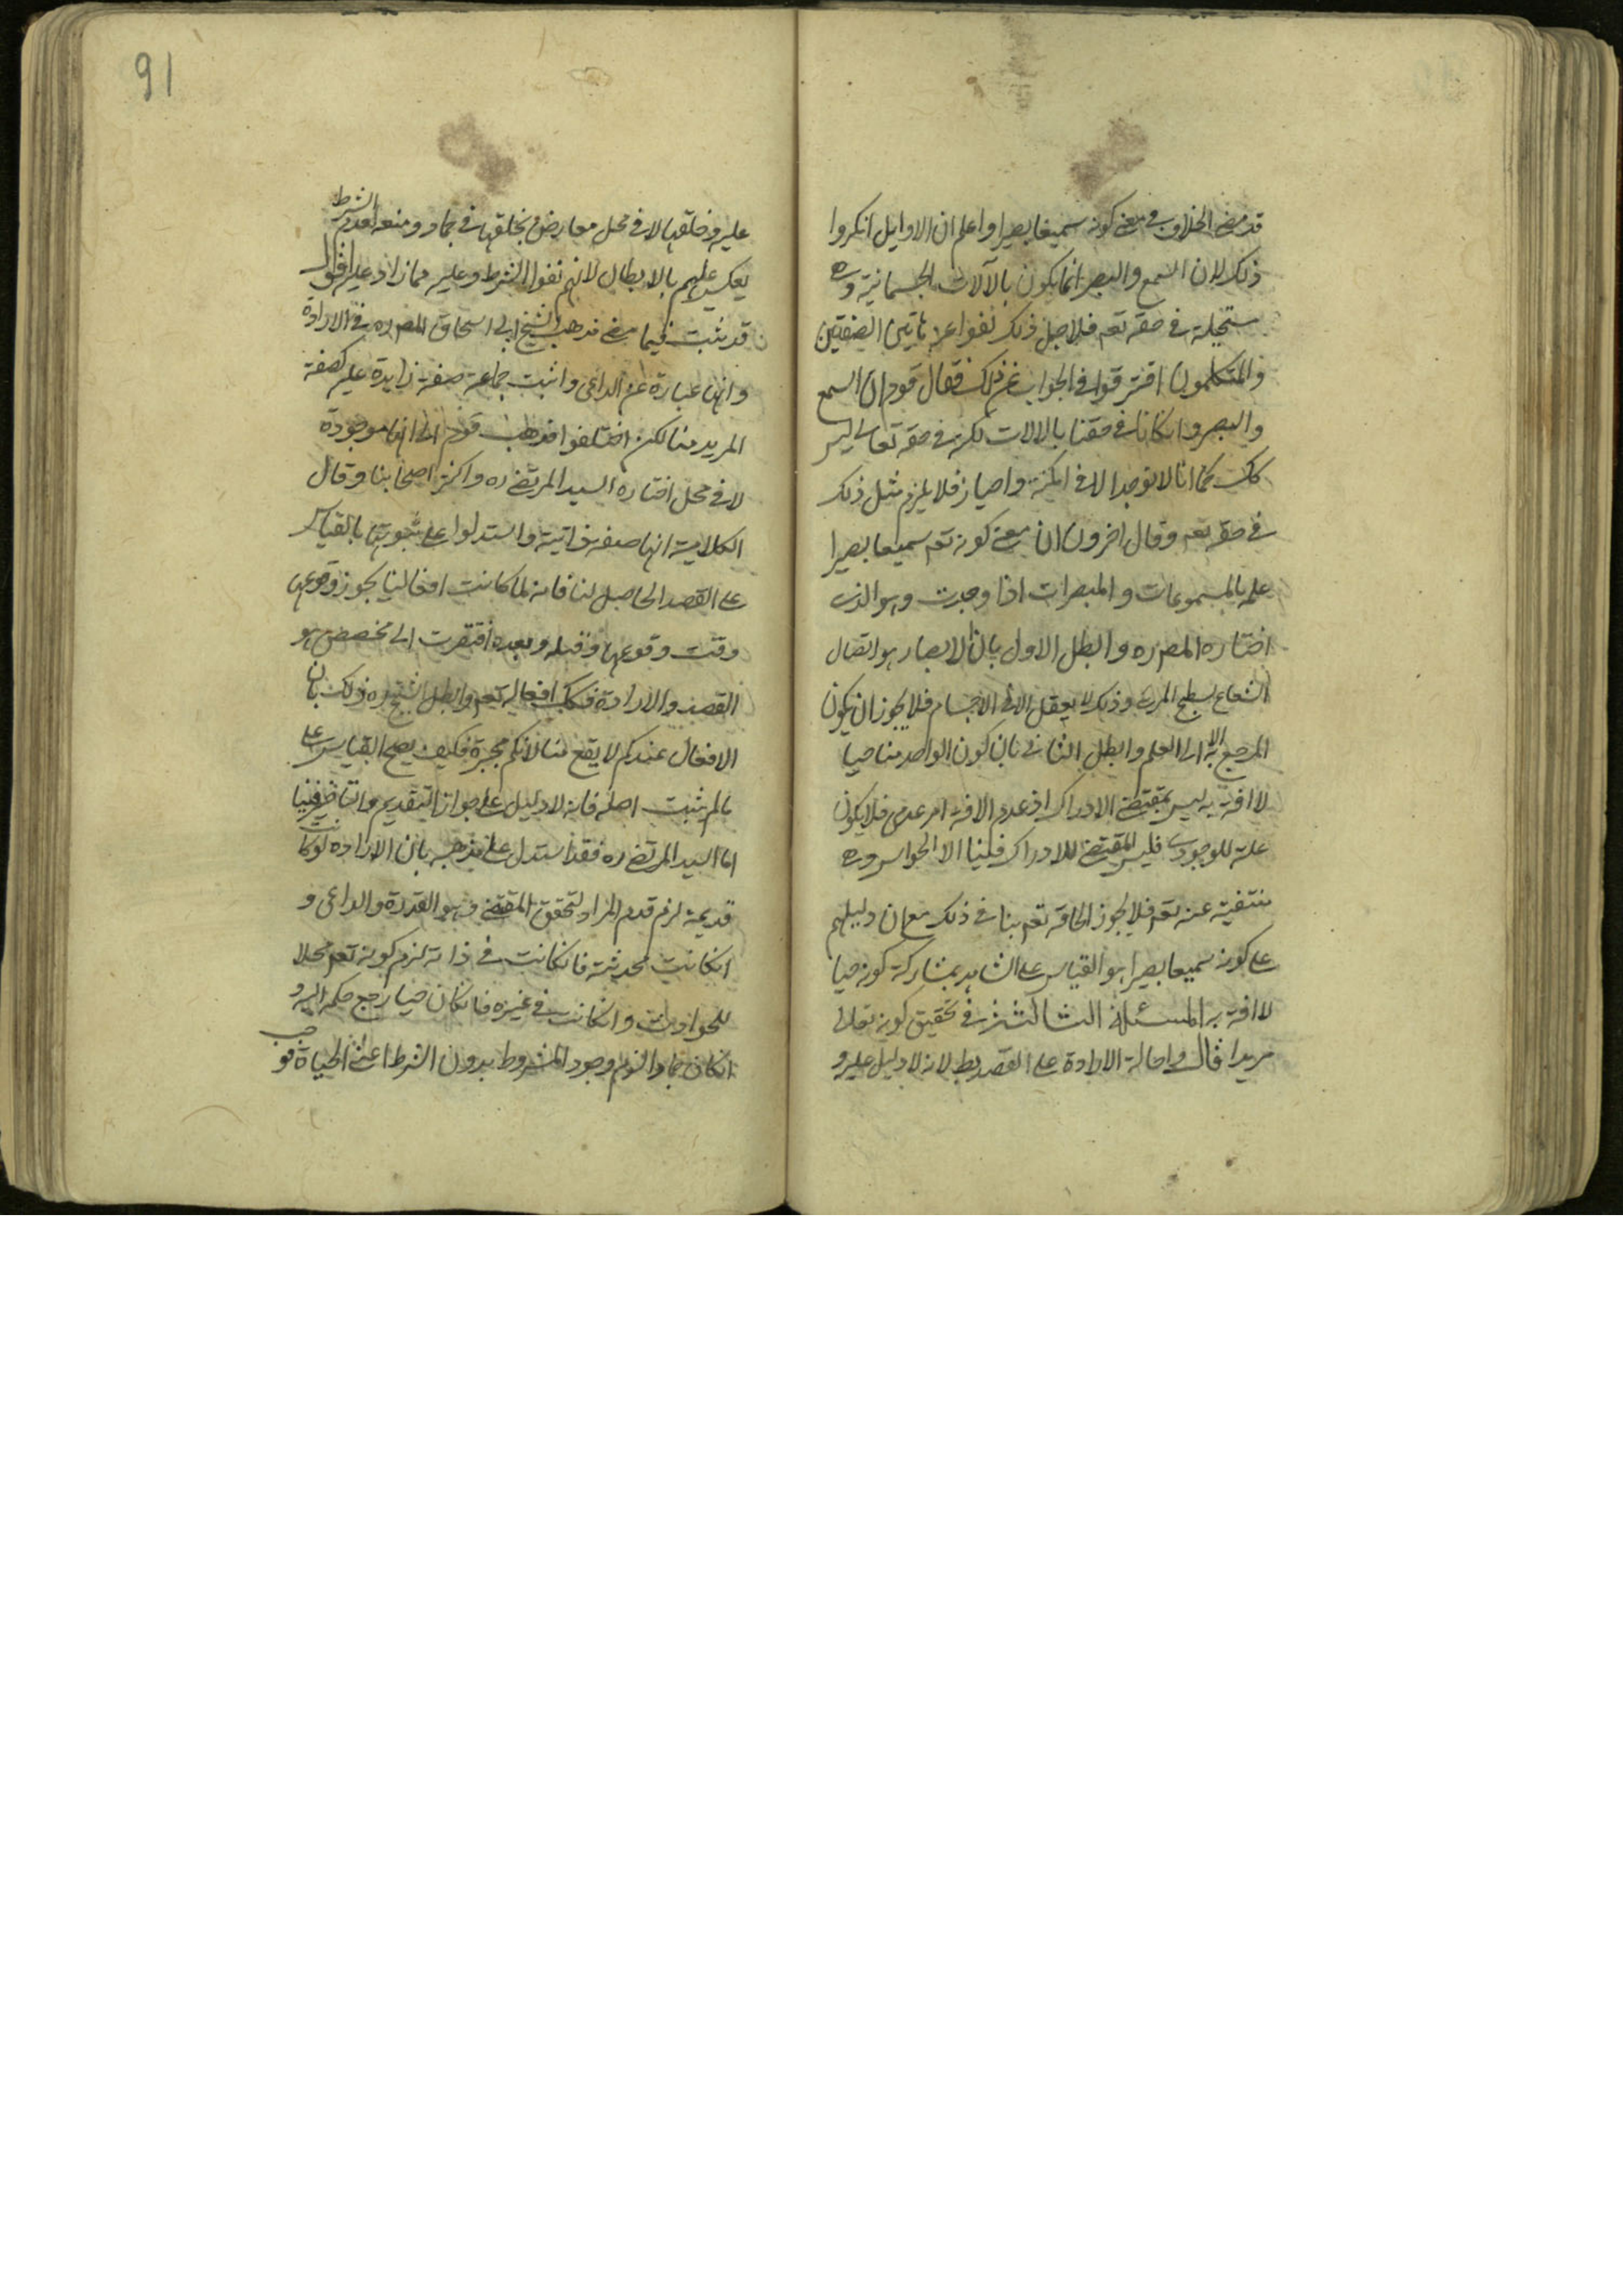 قد مضى الخلاف في معنى كونه سميعا بصيرا واعلم ان الاوايل انكروا
ذلك لان السمع والبصر انما يكون بالآلات الجسمانية وه
ستحيلة في حقه تعه فلاجل ذلك نفوا عنه هاتين الصفتين
والمتكلمون افترقوا في الجواب عن ذلك فقال قوم ان السمع
والبصر وانكانا في حقنا بالالات لكن في حقه تعالى ليس
كك كما انا لا نوجد الا في امكنة واحياز فلا يلزم مثل ذلك
في حقه تعه وقال اخرون ان معنى كونه تعه سميعا بصيرا
علمه بالمسموعات والمبصرات اذا وجدت وهو الذى
اختاره المصره وابطل الاول بان الابصار هو اتصال
الشعاع بسطح المرئى وذلك لا يعقل الا فى الاجسام فلا يجوز ان يكون
المرجع به الا الى العلم وابطل الثانى بان كون الواحد منا حيا
لا افة به ليس بمقتضى الادراك اذ عدم الافة امر عدمى فلا يكون
علة للوجودى فليس المقتضى للادراك فينا الا الحواس وه
منتفية عنه تعه فلا يجوز الحاقه تعه بنا في ذلك مع ان دليلهم
على كونه سميعا بصيرا هو القياس على الشاهد بمشاركة كونه حيا
لا افة به المسئلة الثالثة في تحقيق كونه تعالى
مريدا قال واحالة الارادة على القصد بط لانه لا دليل عليه و
91
عليه وخلقها لا في محل معارض بخلقها في جماد ومنعه لعدم الشرط
يعكس عليهم بالابطال لانهم نفوا الشرط وعليه فما زاد عليه اقول
قد ثبت فيما مضى مذهب الشيخ ابى اسحاق المصره في الارادة
وانها عبارة عن الداعى واثبت جماعة صفة زايدة عليه كصفة
المريد منا لكن اختلفوا فذهب قوم الى انها موجودة
لا في محل اختاره السيد المرتضى ره واكثر اصحابنا وقال
الكلابية انها صفة ذاتية واستدلوا على ثبوتها بالقياس
على القصد الحاصل لنا فانه لما كانت افعالنا يجوز وقوعها
وقت وقوعها وقبله وبعده افتقرت الى مخصص هو
القصد والارادة فكك افعاله تعه وابطل الشيخ ره ذلك بان
الافعال عندكم لا يقع منا لانكم مجبرة فكيف يصح القياس على
ما لم يثبت اصله فانه لا دليل على جواز التقديم والتاخير فينا
اما السيد المرتضى ره فقد استدل على مذهبه بان الارادة لو كانت
قديمة لزم قدم المراد لتحقق المقتضى وهو القدرة والداعى و
انكانت محدثة فانكانت في ذاته لزم كونه تعه محلا
للحوادث وانكانت في غيره فانكان حيا رجع حكمه اليه و
انكان جمادا لزم وجود المشروط بدون الشرط اعنى الحياة فوجب